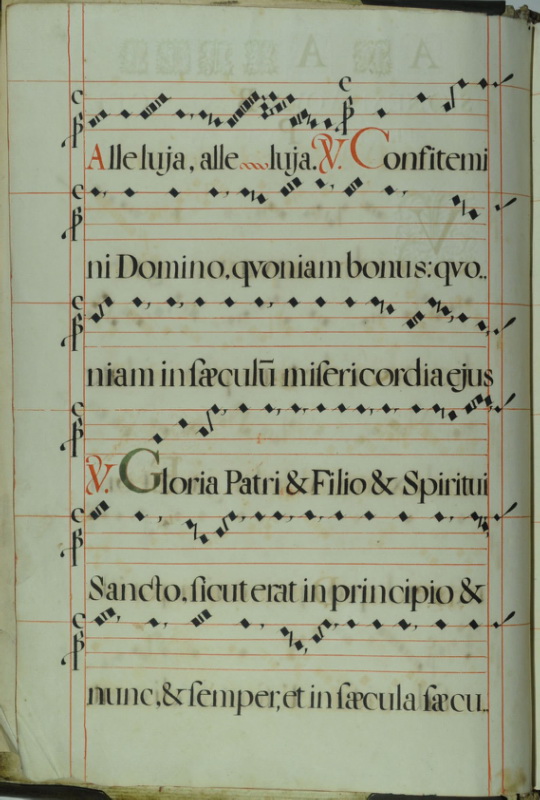 Alleluja, alle luja. ℣. Confitemi
ni Domino, qvoniam bonus: qvo..
niam in ſæculū miſericordia ejus
℣. Gloria Patri & Filio & Spiritui
Sancto, ſicut erat in principio &
nunc, & ſemper, et in ſæcula ſæcu..